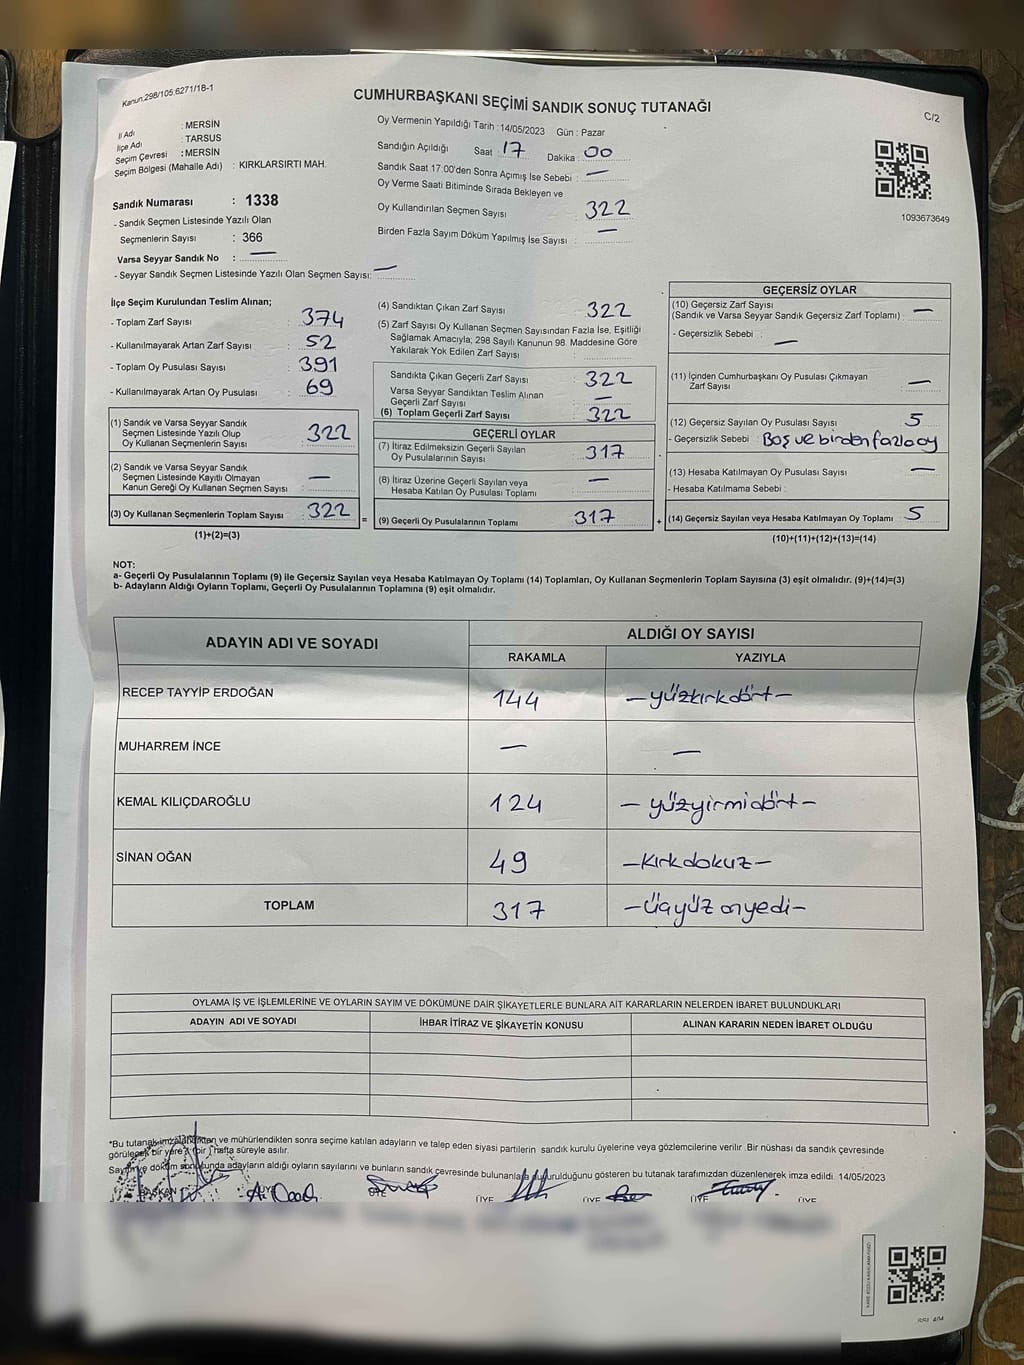 Kanun:298/105:6271/18-1
CUMHURBAŞKANI SEÇİMİ SANDIK SONUÇ TUTANAĞI
C/2
İl Adı : MERSİN
İlçe Adı : TARSUS
Seçim Çevresi : MERSİN
Seçim Bölgesi (Mahalle Adı) : KIRKLARSIRTI MAH.
Sandık Numarası : 1338
- Sandık Seçmen Listesinde Yazılı Olan
Seçmenlerin Sayısı : 366
Varsa Seyyar Sandık No : —
- Seyyar Sandık Seçmen Listesinde Yazılı Olan Seçmen Sayısı: —
Oy Vermenin Yapıldığı Tarih :14/05/2023 Gün : Pazar
Sandığın Açıldığı Saat : 17 Dakika : 00
Sandık Saat 17:00'den Sonra Açımış İse Sebebi : —
Oy Verme Saati Bitiminde Sırada Bekleyen ve
Oy Kullandırılan Seçmen Sayısı : 322
Birden Fazla Sayım Döküm Yapılmış İse Sayısı : —
1093673649
İlçe Seçim Kurulundan Teslim Alınan;
- Toplam Zarf Sayısı : 374
- Kullanılmayarak Artan Zarf Sayısı : 52
- Toplam Oy Pusulası Sayısı : 391
- Kullanılmayarak Artan Oy Pusulası : 69
(1) Sandık ve Varsa Seyyar Sandık
Seçmen Listesinde Yazılı Olup
Oy Kullanan Seçmenlerin Sayısı : 322
(2) Sandık ve Varsa Seyyar Sandık
Seçmen Listesinde Kayıtlı Olmayan
Kanun Gereği Oy Kullanan Seçmen Sayısı : —
(3) Oy Kullanan Seçmenlerin Toplam Sayısı : 322
(1)+(2)=(3)
(4) Sandıktan Çıkan Zarf Sayısı : 322
(5) Zarf Sayısı Oy Kullanan Seçmen Sayısından Fazla İse, Eşitliği
Sağlamak Amacıyla; 298 Sayılı Kanunun 98. Maddesine Göre
Yakılarak Yok Edilen Zarf Sayısı :
Sandıkta Çıkan Geçerli Zarf Sayısı : 322
Varsa Seyyar Sandıktan Teslim Alınan
Geçerli Zarf Sayısı : —
(6) Toplam Geçerli Zarf Sayısı : 322
GEÇERLİ OYLAR
(7) İtiraz Edilmeksizin Geçerli Sayılan
Oy Pusulalarının Sayısı : 317
(8) İtiraz Üzerine Geçerli Sayılan veya
Hesaba Katılan Oy Pusulası Toplamı : —
= (9) Geçerli Oy Pusulalarının Toplamı : 317
GEÇERSİZ OYLAR
(10) Geçersiz Zarf Sayısı
(Sandık ve Varsa Seyyar Sandık Geçersiz Zarf Toplamı) : —
- Geçersizlik Sebebi : —
(11) İçinden Cumhurbaşkanı Oy Pusulası Çıkmayan
Zarf Sayısı : —
(12) Geçersiz Sayılan Oy Pusulası Sayısı : 5
- Geçersizlik Sebebi : Boş ve birden fazla oy
(13) Hesaba Katılmayan Oy Pusulası Sayısı : —
- Hesaba Katılmama Sebebi :
+ (14) Geçersiz Sayılan veya Hesaba Katılmayan Oy Toplamı : 5
(10)+(11)+(12)+(13)=(14)
NOT:
a- Geçerli Oy Pusulalarının Toplamı (9) ile Geçersiz Sayılan veya Hesaba Katılmayan Oy Toplamı (14) Toplamları, Oy Kullanan Seçmenlerin Toplam Sayısına (3) eşit olmalıdır. (9)+(14)=(3)
b- Adayların Aldığı Oyların Toplamı, Geçerli Oy Pusulalarının Toplamına (9) eşit olmalıdır.
ADAYIN ADI VE SOYADI
ALDIĞI OY SAYISI
RAKAMLA YAZIYLA
RECEP TAYYİP ERDOĞAN 144 –yüzkırkdört–
MUHARREM İNCE — —
KEMAL KILIÇDAROĞLU 124 –yüzyirmidört–
SİNAN OĞAN 49 –kırkdokuz–
TOPLAM 317 –üçyüz onyedi–
OYLAMA İŞ VE İŞLEMLERİNE VE OYLARIN SAYIM VE DÖKÜMÜNE DAİR ŞİKAYETLERLE BUNLARA AİT KARARLARIN NELERDEN İBARET BULUNDUKLARI
ADAYIN ADI VE SOYADI İHBAR İTİRAZ VE ŞİKAYETİN KONUSU ALINAN KARARIN NEDEN İBARET OLDUĞU
*Bu tutanak imzalandıktan ve mühürlendikten sonra seçime katılan adayların ve talep eden siyasi partilerin sandık kurulu üyelerine veya gözlemcilerine verilir. Bir nüshası da sandık çevresinde
görülecek bir yere 1 (bir ) hafta süreyle asılır.
Sayım ve döküm sonucunda adayların aldığı oyların sayılarını ve bunların sandık çevresinde bulunanlara duyurulduğunu gösteren bu tutanak tarafımızdan düzenlenerek imza edildi. 14/05/2023
BAŞKAN ÜYE ÜYE ÜYE ÜYE ÜYE ÜYE